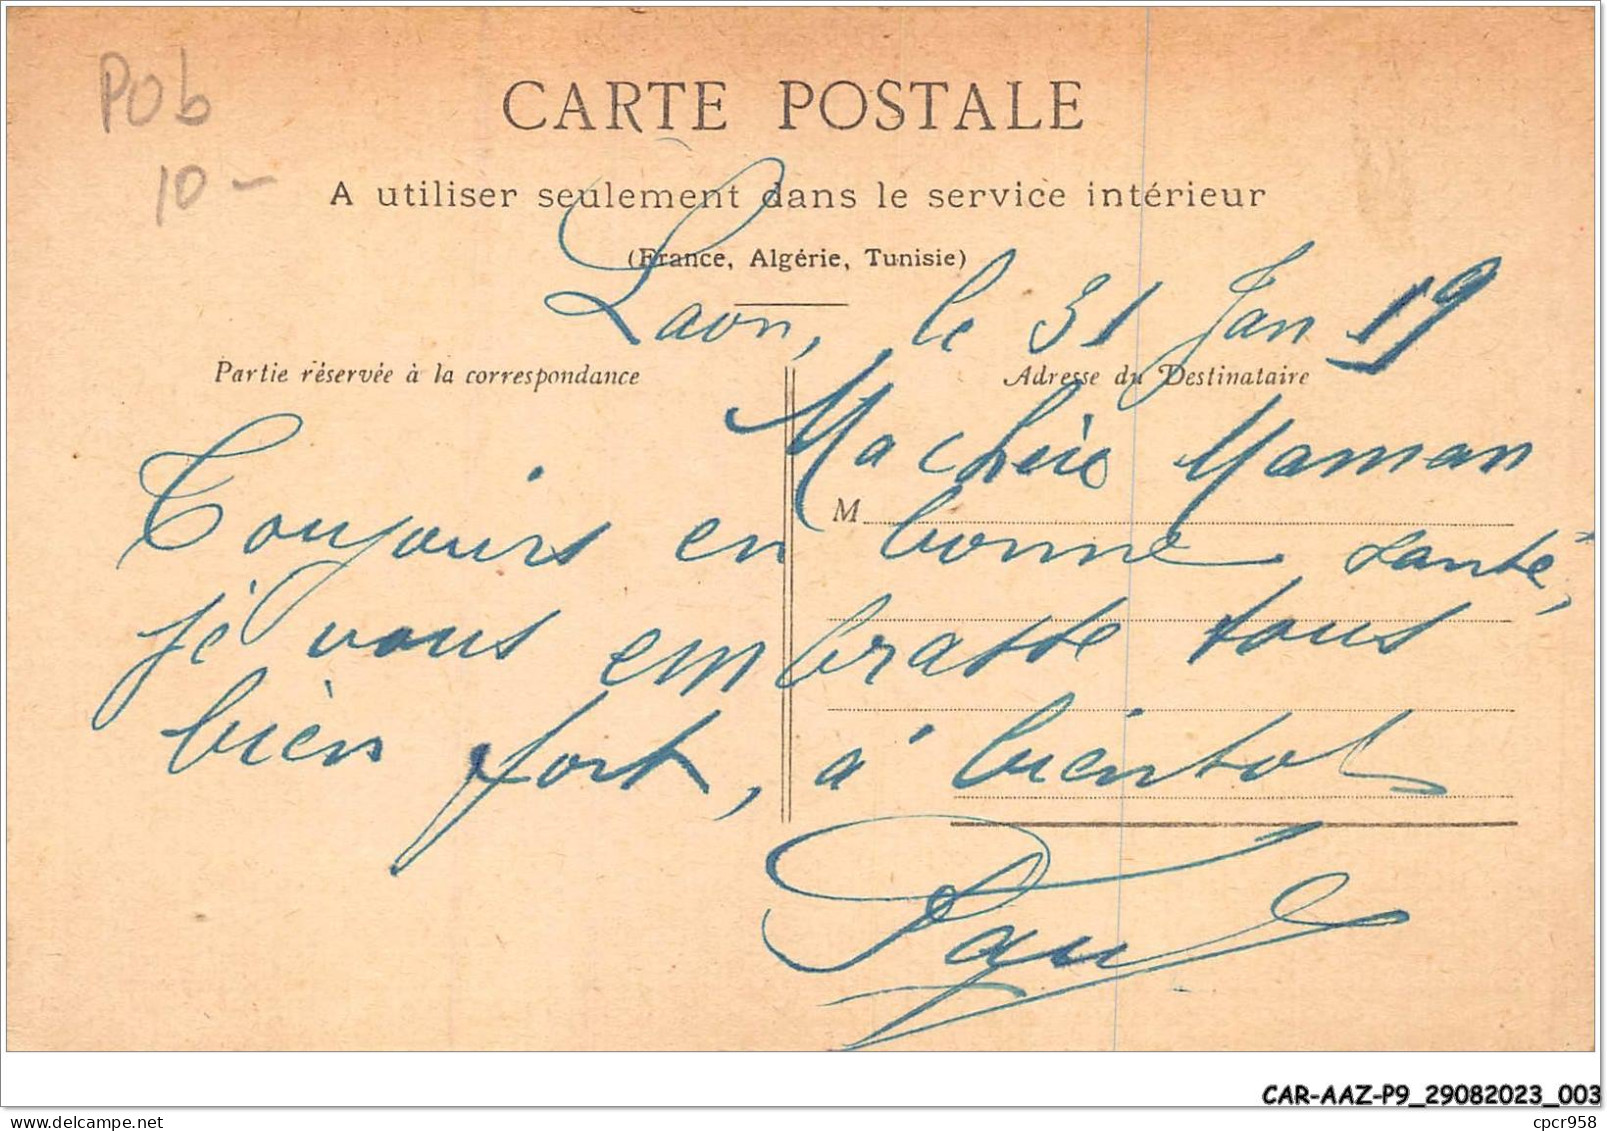 Pob
10 -
CARTE POSTALE
A utiliser seulement dans le service intérieur
(France, Algérie, Tunisie)
Laon, le 31 Jan 19
Partie réservée à la correspondance
Adresse du Destinataire
Ma chère Maman
M
Toujours en bonne santé,
je vous embrasse tous
bien fort, à bientot
Paul
CAR-AAZ-P9_29082023_003
delcampe.net
cpcr958